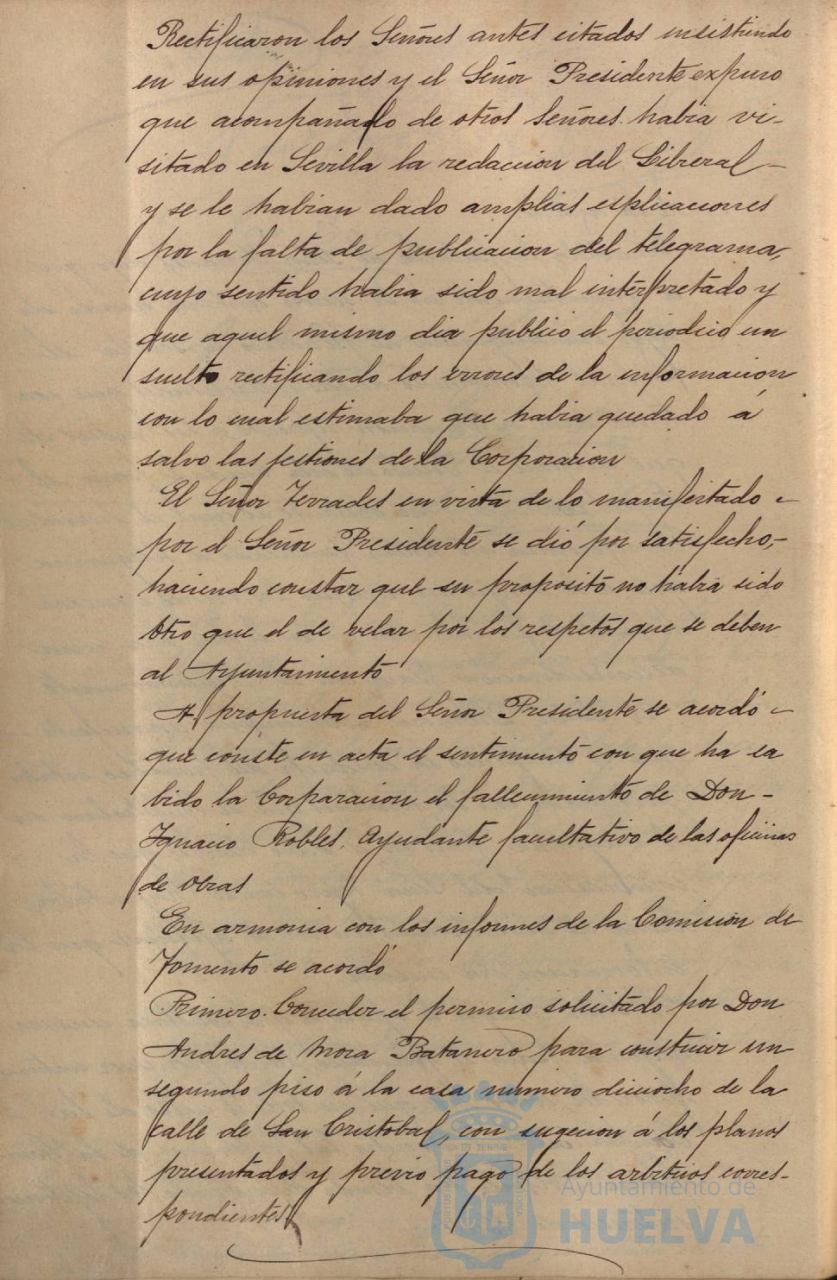 Rectificaron los Señores antes citados insistiendo
en sus opiniones y el Señor Presidente expuso
que acompañado de otros Señores habia vi-
sitado en Sevilla la redaccion del Liberal
y se le habian dado amplias esplicaciones
por la falta de publicacion del telegrama,
cuyo sentido habia sido mal interpretado y
que aquel mismo dia publicó el periodico un
suelto rectificando los errores de la informacion
con lo cual estimaba que habia quedado á
salvo las gestiones de la Corporacion
El Señor Terrades en vista de lo manifestado
por el Señor Presidente se dió por satisfecho,
haciendo constar que su proposito no habia sido
otro que el de velar por los respetos que se deben
al Ayuntamiento
A propuesta del Señor Presidente se acordó
que conste en acta el sentimiento con que ha sa
bido la Corporacion el fallecimiento de Don
Ignacio Robles, Ayudante facultativo de las oficinas
de obras
En armonia con los informes de la Comision de
Fomento se acordó
Primero. Conceder el permiso solicitado por Don
Andres de Mora Batanero para construir un
segundo piso á la casa numero dieciocho de la
calle de San Cristobal, con sugecion á los planos
presentados y previo pago de los arbitrios corres-
pondientes
Ayuntamiento de
HUELVA